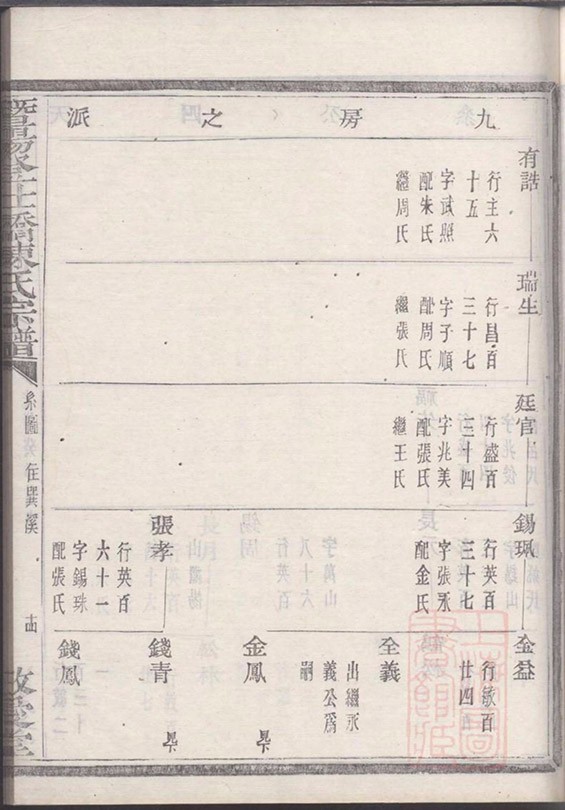 九房之派
有誥
行主六
十五
字武照
配朱氏
繼周氏
瑞生
行昌百
三十七
字子順
配周氏
繼張氏
廷官
行盛百
三十四
字兆美
配張氏
繼王氏
錫珮
行英百
三十七
字張永
配金氏
張孝
行英百
六十一
字錫珠
配張氏
全益
行敏百
廿四
全義
出繼永
義公為
嗣
金鳳
錢青
錢鳳
橋陳氏宗譜
系圖
在巽溪